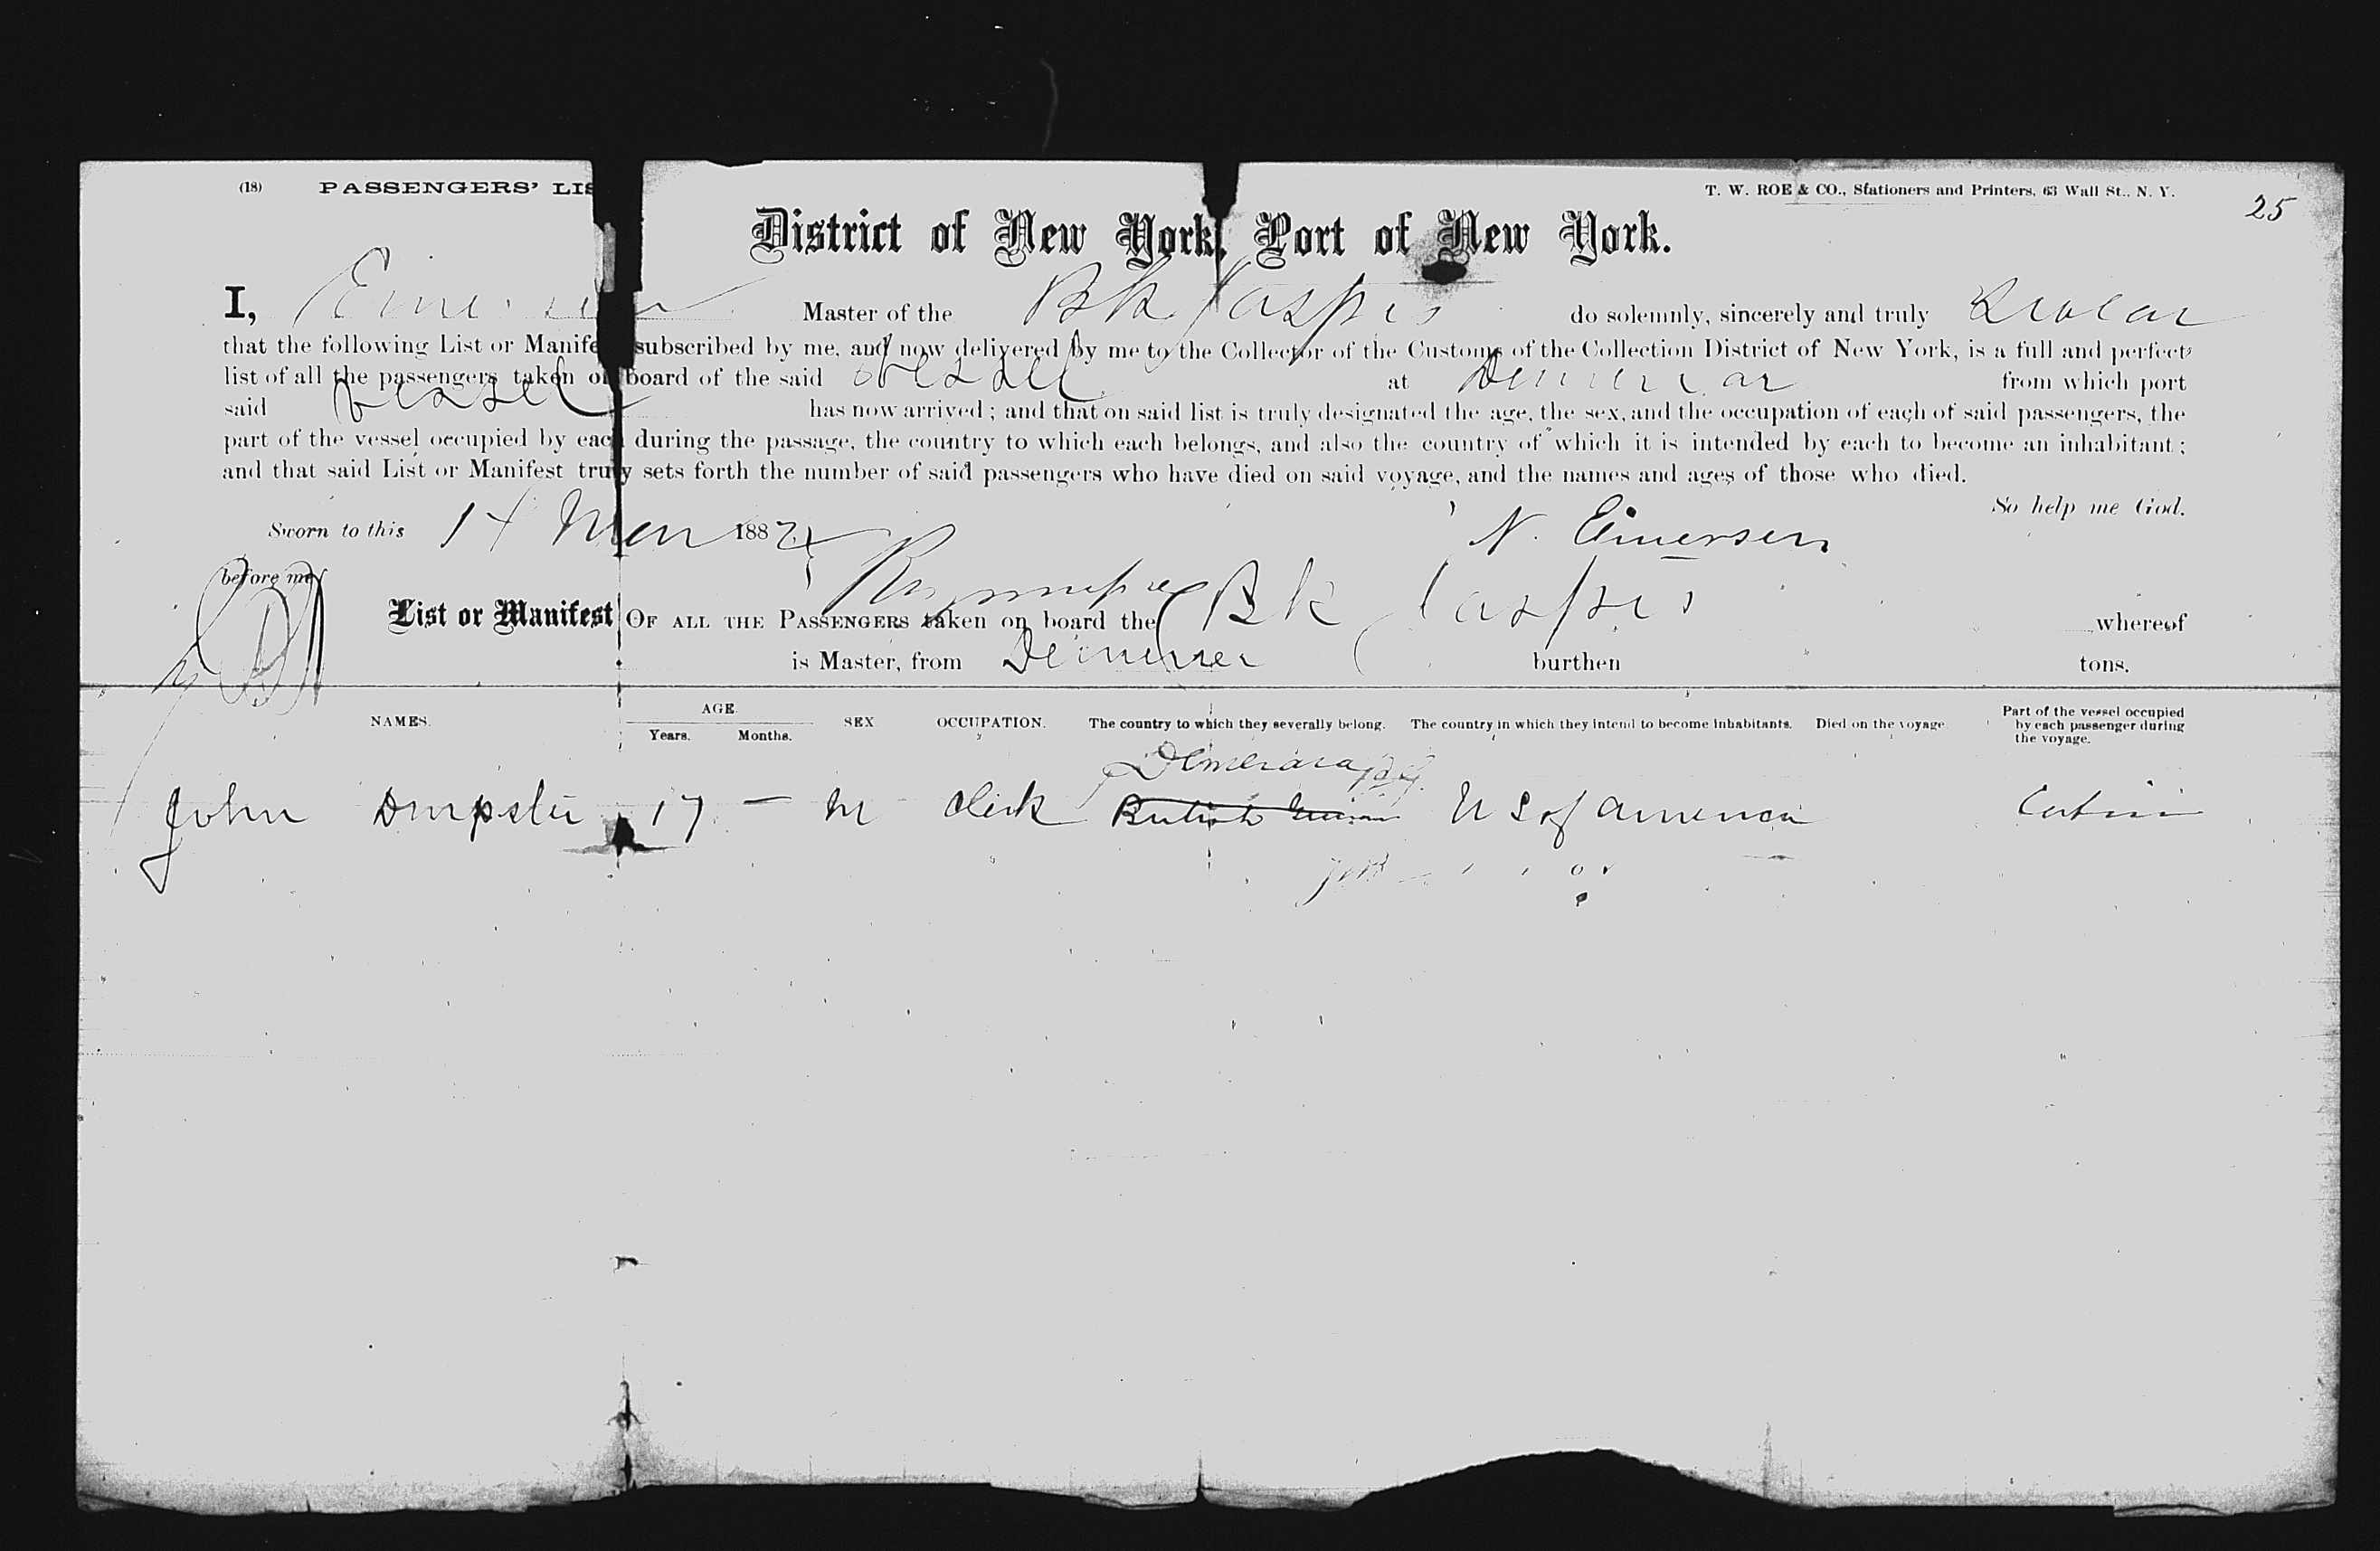 (18) PASSENGERS' LIS T. W. ROE & CO., Stationers and Printers, 63 Wall St., N. Y.
25
District of New York, Port of New York.
I, Master of the Bk Jaspis do solemnly, sincerely and truly swear
that the following List or Manife subscribed by me, and now delivered by me to the Collector of the Customs of the Collection District of New York, is a full and perfect
list of all the passengers taken on board of the said vessel at from which port
said vessel has now arrived; and that on said list is truly designated the age, the sex, and the occupation of each of said passengers, the
part of the vessel occupied by each during the passage, the country to which each belongs, and also the country of which it is intended by each to become an inhabitant;
and that said List or Manifest truly sets forth the number of said passengers who have died on said voyage, and the names and ages of those who died.
So help me God.
Sworn to this 14 188 N. Emersen
before me
List or Manifest OF ALL THE PASSENGERS taken on board the Bk Jaspis whereof
is Master, from burthen tons.
NAMES. AGE. SEX OCCUPATION. The country to which they severally belong. The country in which they intend to become inhabitants. Died on the voyage. Part of the vessel occupied by each passenger during the voyage.
Years. Months.
Demerara
John Dempster 17 — M Clerk British U S of America Cabin